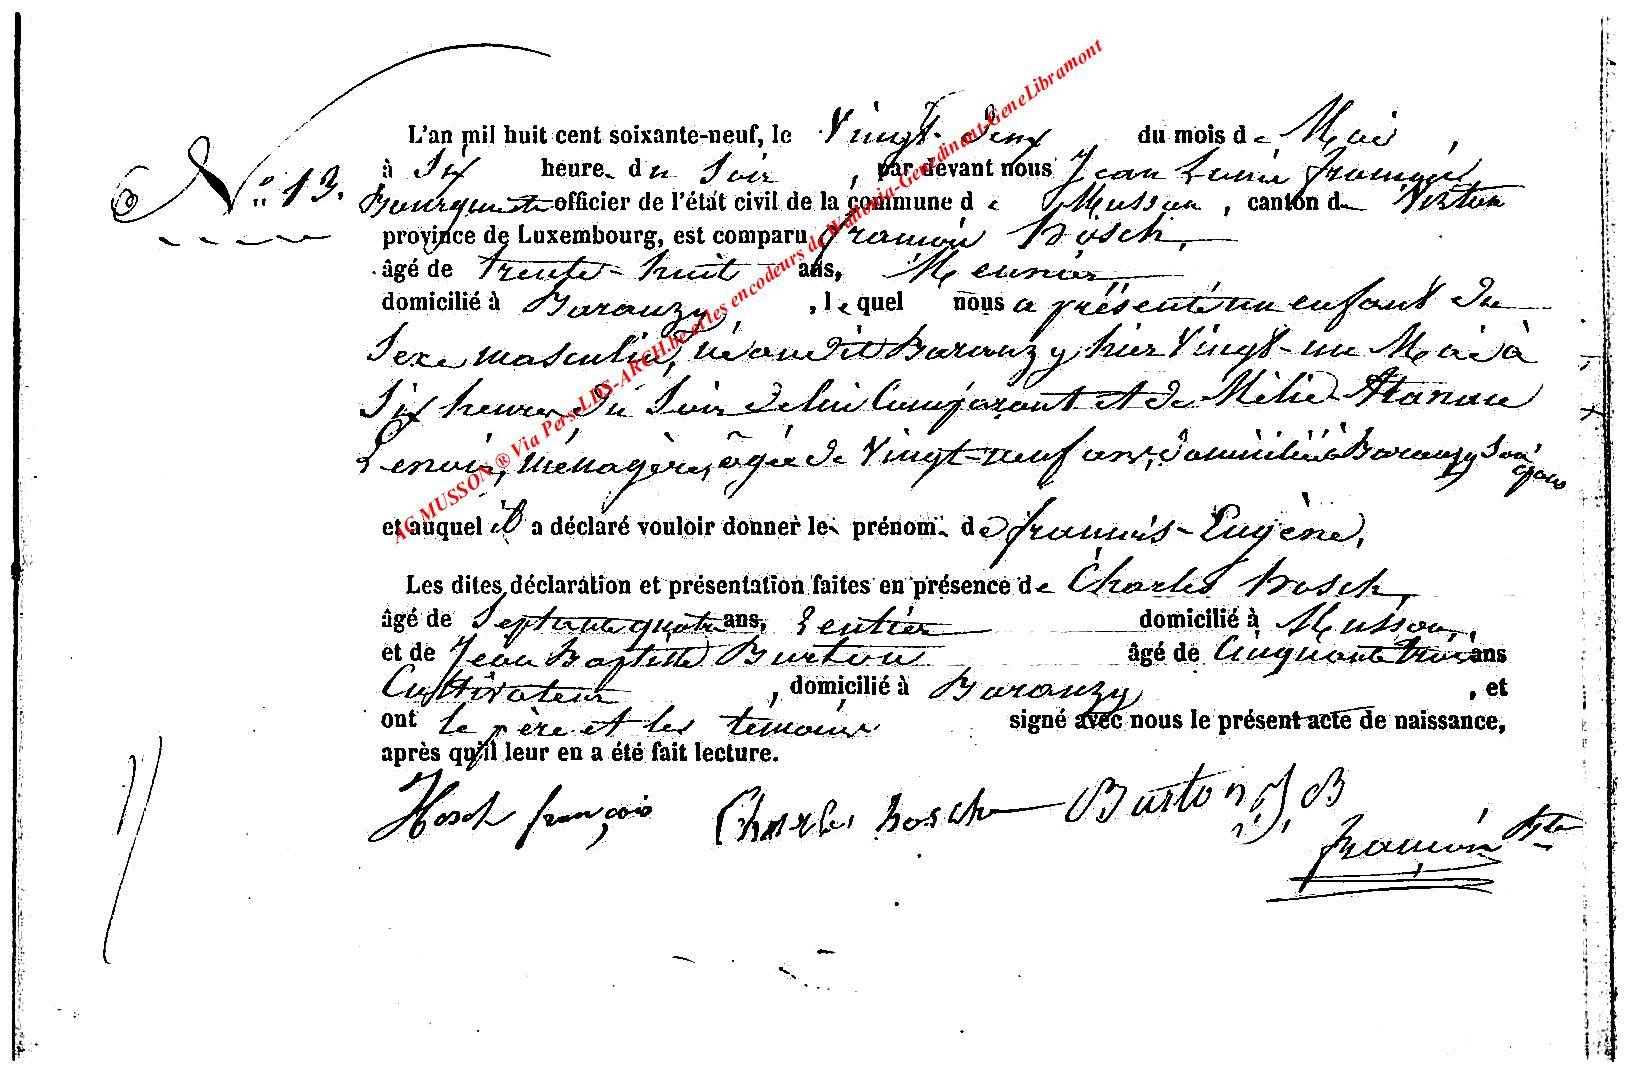 L'an mil huit cent soixante-neuf, le Vingt-deux du mois de Mai,
N° 13.
à Six heures du Soir, par devant nous Jean Louis François
Bourguet officier de l'état civil de la commune de Musson, canton de Virton
province de Luxembourg, est comparu François Hosch,
âgé de trente-huit ans, Meunier
domicilié à Baranzy, lequel nous a présenté un enfant du
Sexe masculin, né audit Baranzy hier Vingt-un Mai à
Six heures du Soir de lui Comparant et de Mélie
Lenoir, ménagère, agée de Vingt-neuf ans, domiciliée à Baranzy Son
epouse
et auquel il a déclaré vouloir donner les prénoms de francis-Eugène,
Les dites déclaration et présentation faites en présence de Charles Hosch,
âgé de Septante quatre ans, Rentier domicilié à Musson,
et de Jean Baptiste Burton âgé de Cinquante trois ans
Cultivateur, domicilié à Baranzy, et
ont le père et les témoins signé avec nous le présent acte de naissance,
après qu'il leur en a été fait lecture.
Hosch françois Charles hosch Burton J, B
françois
AC MUSSON ® Via Pers-LDS-ARCH.be et les encodeurs de Wallonia-Genedinant-GeneLibramont